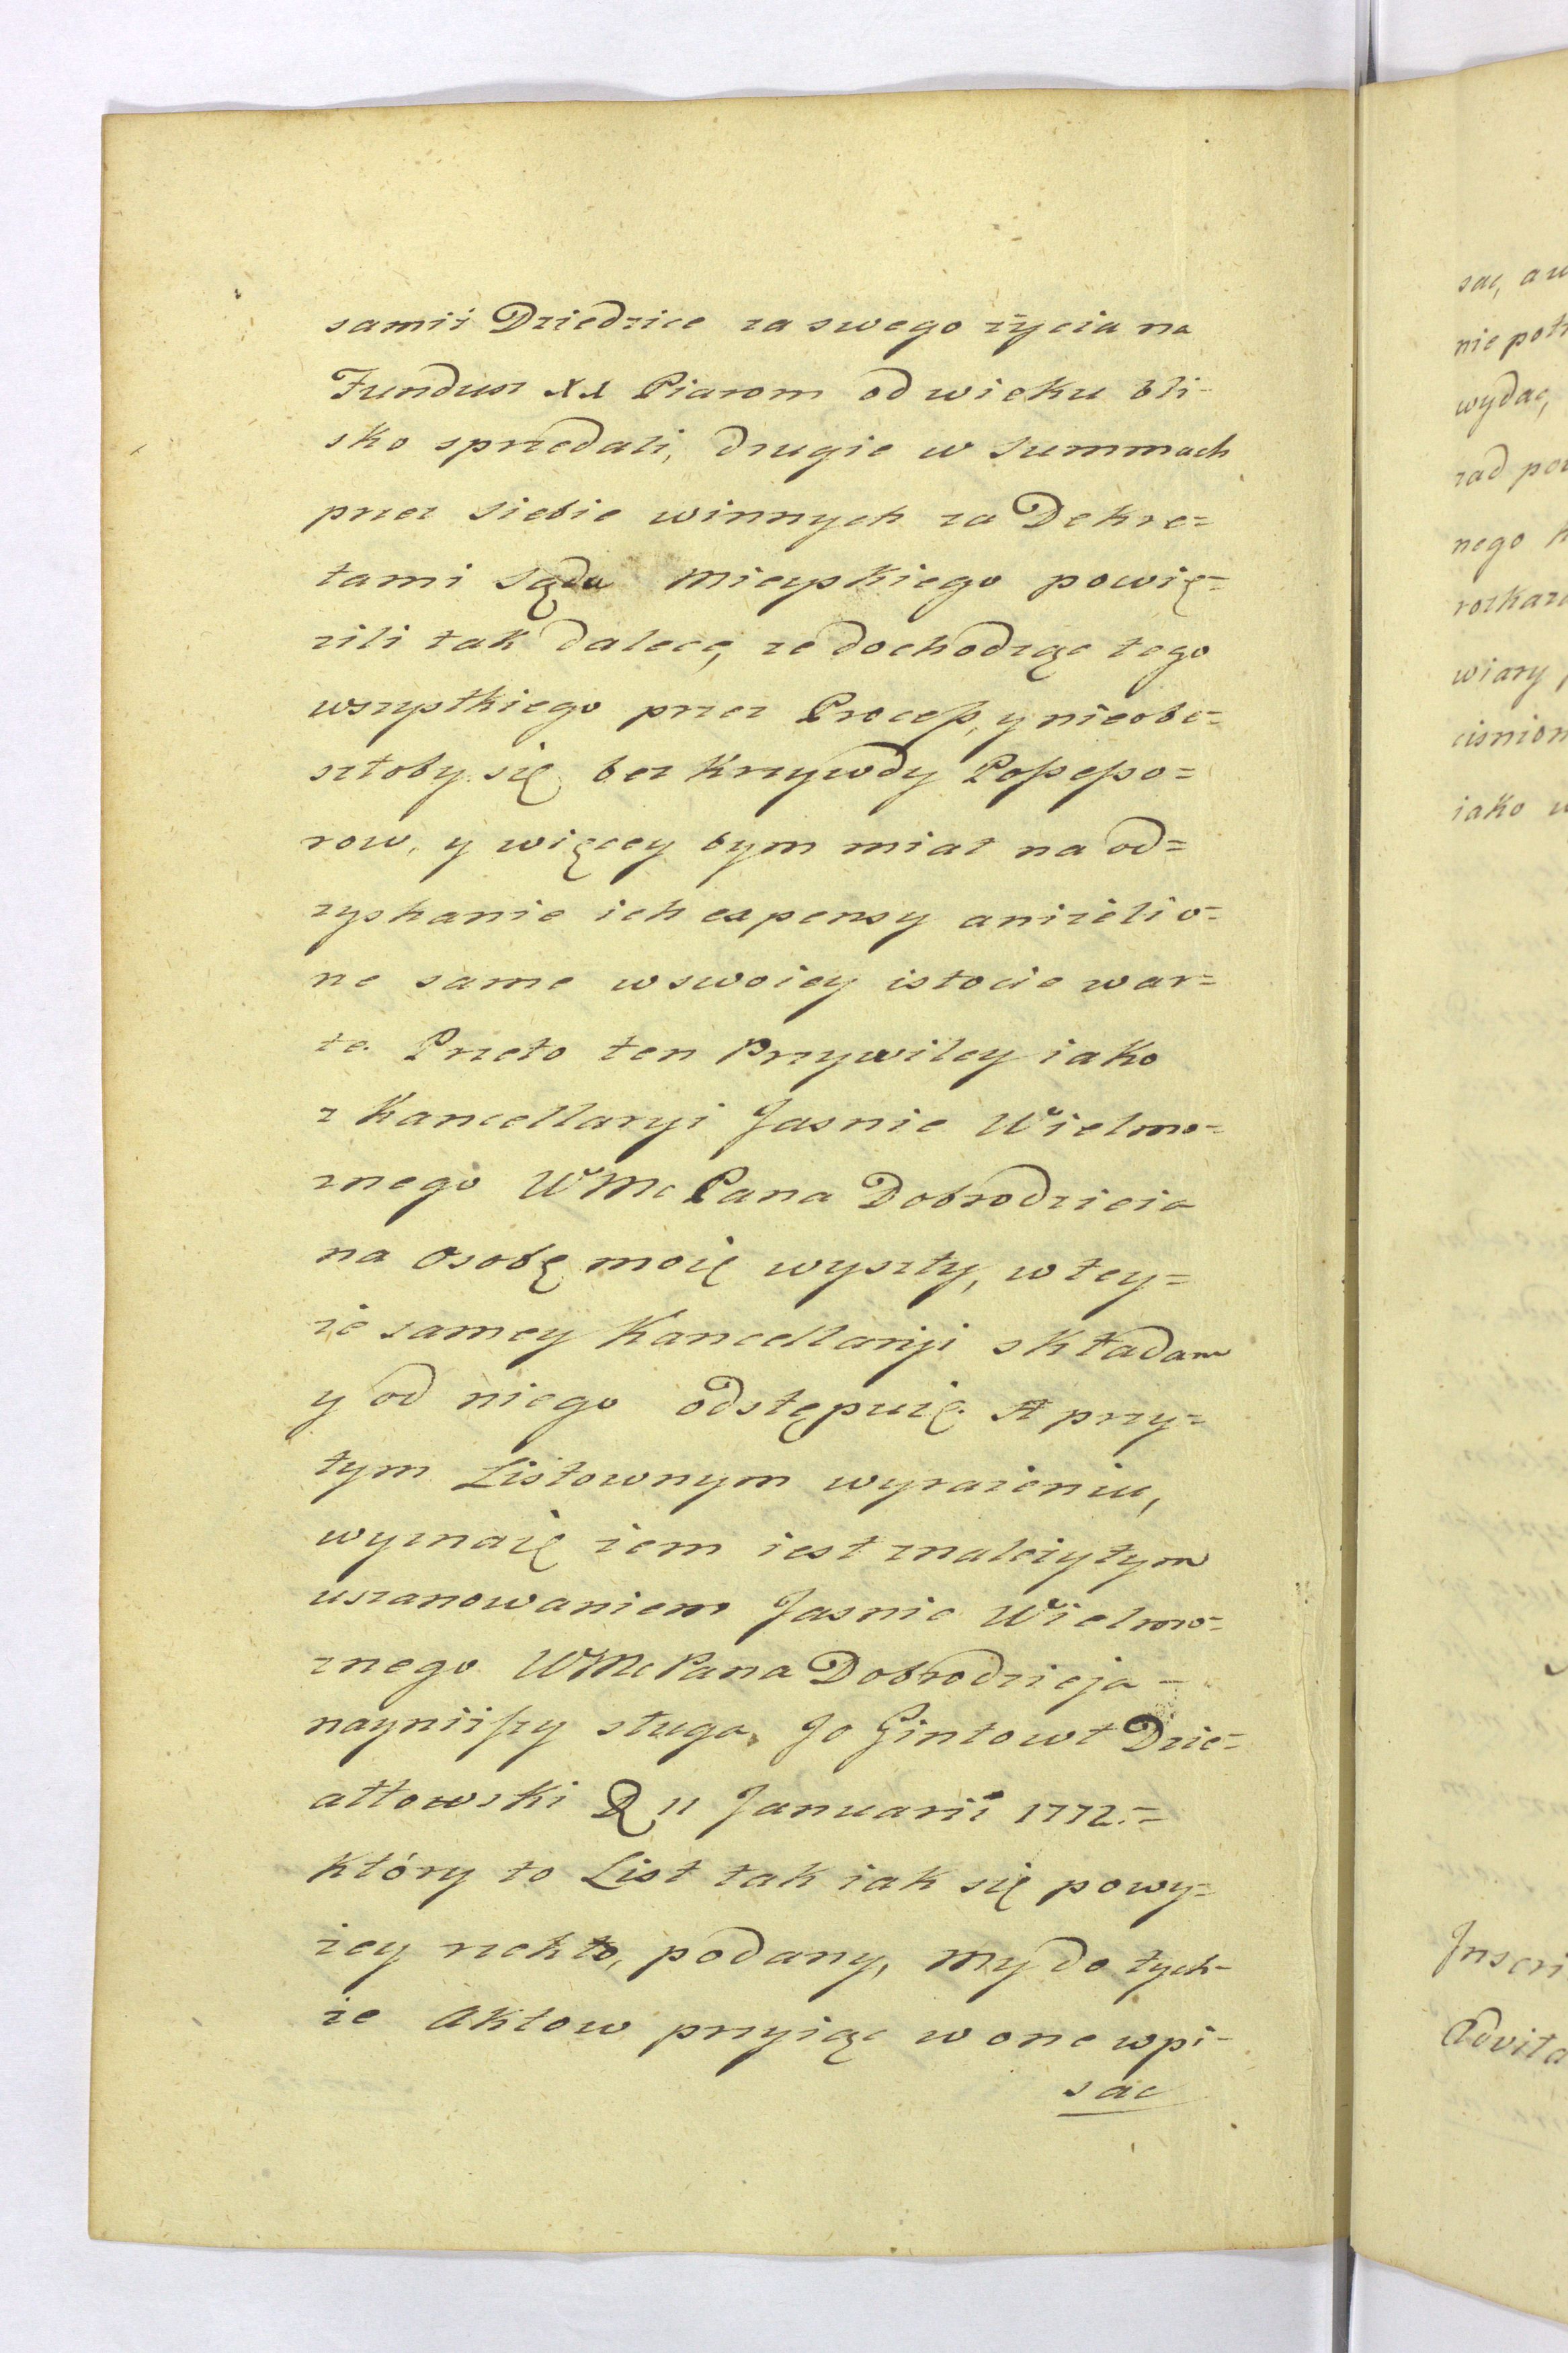 samii Dziedzice za swego życia na
Fundusz XX Piarom od wieku bli-
sko sprzedali, drugie w summach
przez siebie winnych za Dekre=
tami Sądu Mieyskiego powię=
zili tak dalece, ze dochodząc tego
wszystkiego przez Process, y nieobe=
szłoby się bez Krzywdy Possesso=
row, y więcey bym miał na od=
zyskanie ich expensy anizeli o=
ne same w swoiey istocie war=
te. Przeto ten Przywiley iako
z Kancellaryi Jasnie Wielmo=
znego WMc Pana Dobrodzieia
na osobę moię wyszły, w tey=
ze samey Kancellaryi składam
y od niego odstępuię. A przy=
tym Listownym wyrazeniu,
wyznaię zem iest z nalezytym
uszanowaniem Jasnie Wielmo=
znego WMc Pana Dobrodzieja -
nayniższy sługa, Jo Gintowt Dzie=
ałtowski D 11 Januarii 1772.=
który to List tak iak się powy=
zey rzekło, podany, My do tych=
ze Aktow przyiąc w one wpi-
sac
sac, a
nie
wydac,
rad
nego
wiary
iako